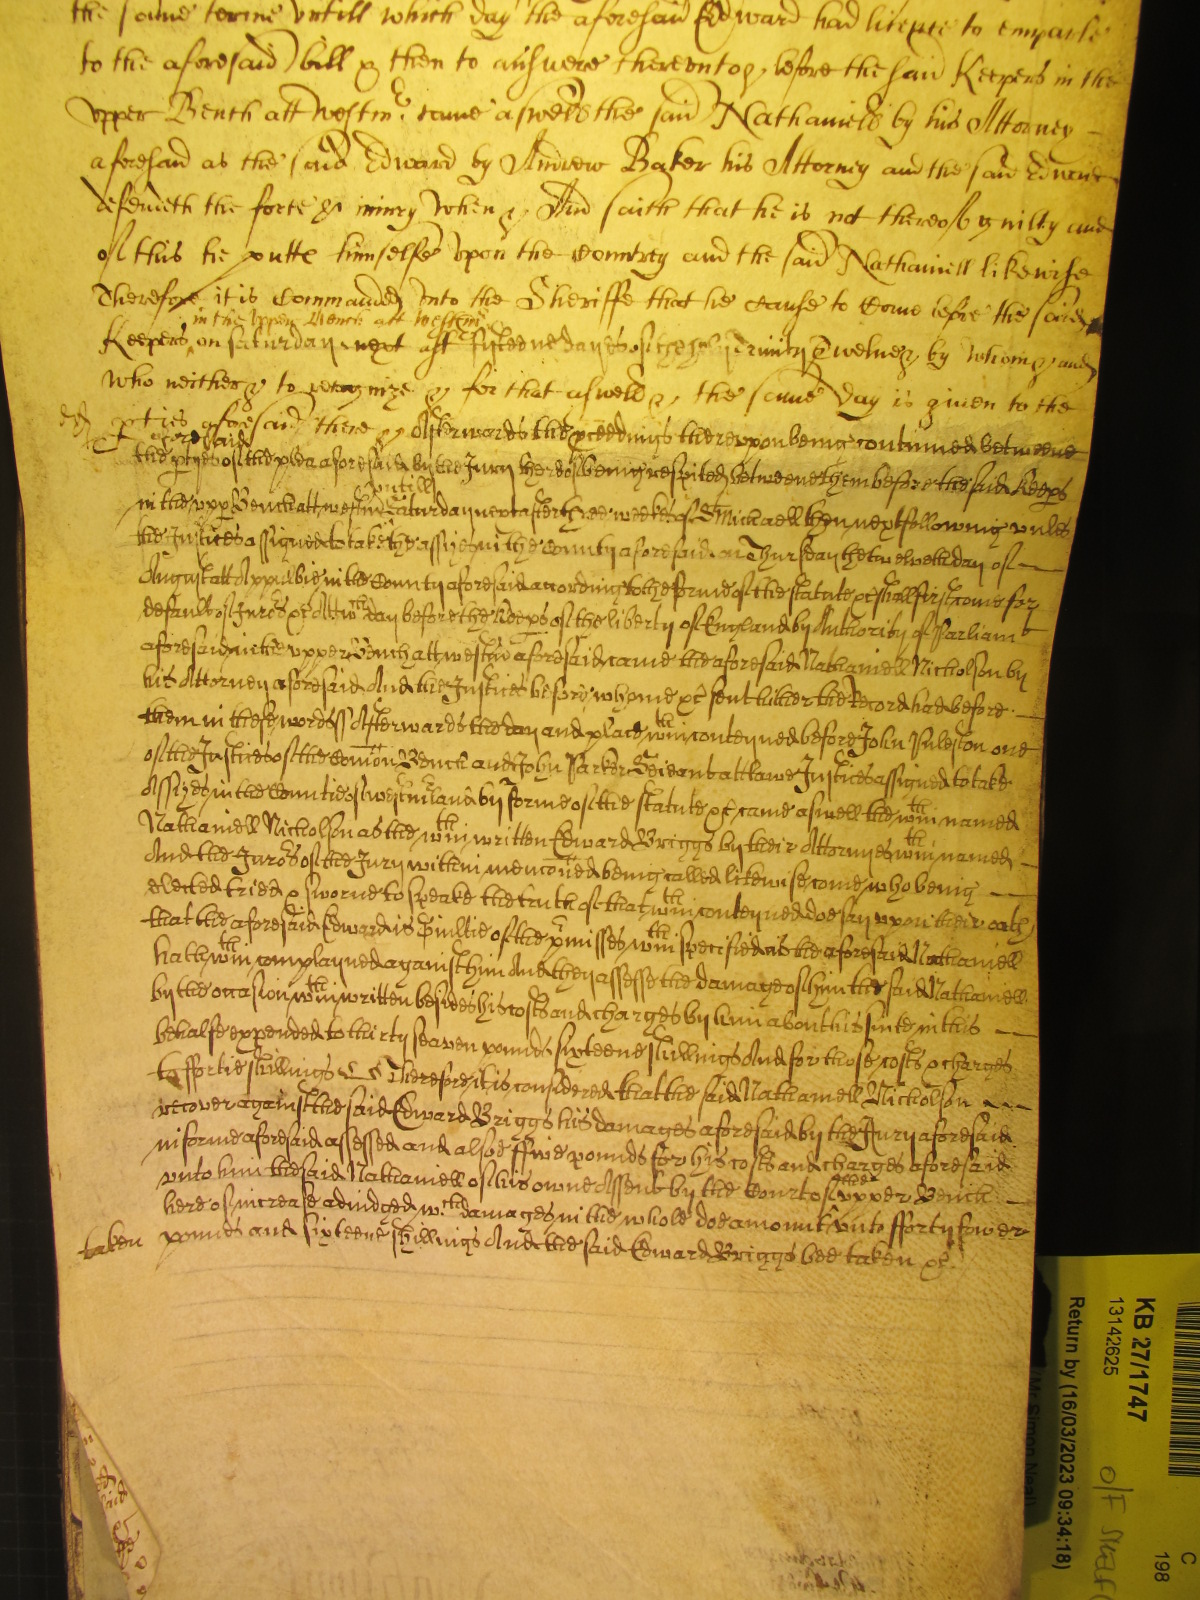 the same terme vntill which day the aforesaid Edward had licence to emparle
to the aforesaid bill & then to answere therevnto &c before the said Keepers in the
vpper Bench att Westmr came aswell the said Nathaniell by his Attorney
aforesaid as the said Edward by Andrew Baker his Attorney and the said Edward
defendeth the force & iniury when &c And saith that he is not thereof guilty and
of this he putts himselfe vpon the Countrey and the said Nathaniell likewise
Therefore it is Commanded vnto the Sheriffe that he cause to come before the said
in the vpper Bench att Westmr
Keepers on Saturday next aft dayes of the holy Trinity Twelue &c by whom &c and
who neither &c to recognize &c for that aswell &c the same day is giuen to the
pties aforesaid there &c Afterwards the pceedings therevpon being continued betweene
the ptyes of the plea aforesaid by the Jury thereof being respited betweene them before the said Keeps
vntill
in the vpp Bench att Westmr Saturday next after three weekes of St Michaell then next following vnles
the Justices assigned to take the assizes in the County aforesaid on Thursday the twelveth day of
August att Appulbie in the County aforesaid according to the forme of the statute &c shall first come for
default of Jurors &c Att wch day before the Keeps of the liberty of England by Authority of Parliamt
aforesaid in the vpper Bench att Westmr aforesaid came the aforesaid Nathaniell Nicholson by
his Attorney aforesaid And the Justices before whome &c sent hither the Record had before
them in these words ss Afterwards the day and place wthin conteyned before John Puleston one
of the Justices of the Comon Bench and John Parker Serieant att lawe Justices assigned to take
Assizes in the Countie of Westmerland by forme of the statute &c came aswell the wthin named
Nathaniell Nicholson as the wthin written Edward Briggs by their Attornyes wthin named
And the Jurors of the Jury within menconed being called likewise come who being
elected tried & sworne to speake the truth of that wthin conteyned doe say vpon their oath
that the aforesaid Edward is Guiltie of the pmisses wthin specified as the aforesaid Nathaniell
hath wthin complayned against him And they assesse the damage of him the said Nathaniell
by the occasion wthin written besides his costs and charges by him about his suite in this
behalfe expended to thirty seaven pounds sixteene shillings And for those costs & charges
to ffortie shillings Therefore it is considered that the said Nathaniell Nicholson
recover against the said Edward Briggs his damages aforesaid by the Jury aforesaid
in forme aforesaid assessed and alsoe ffive pounds for his costs and charges aforesaid
vnto him the said Nathaniell of his owne Assent by the Court of the vpper Bench
here of increase adiudged wch damages in the whole doe amount vnto fforty fower
taken pounds and sixteene shillings And the said Edward Briggs bee taken &c
KB 27/1747
13142625
Return by (16/03/2023 09:34:18)
(Mr Simon Neal)
C
198